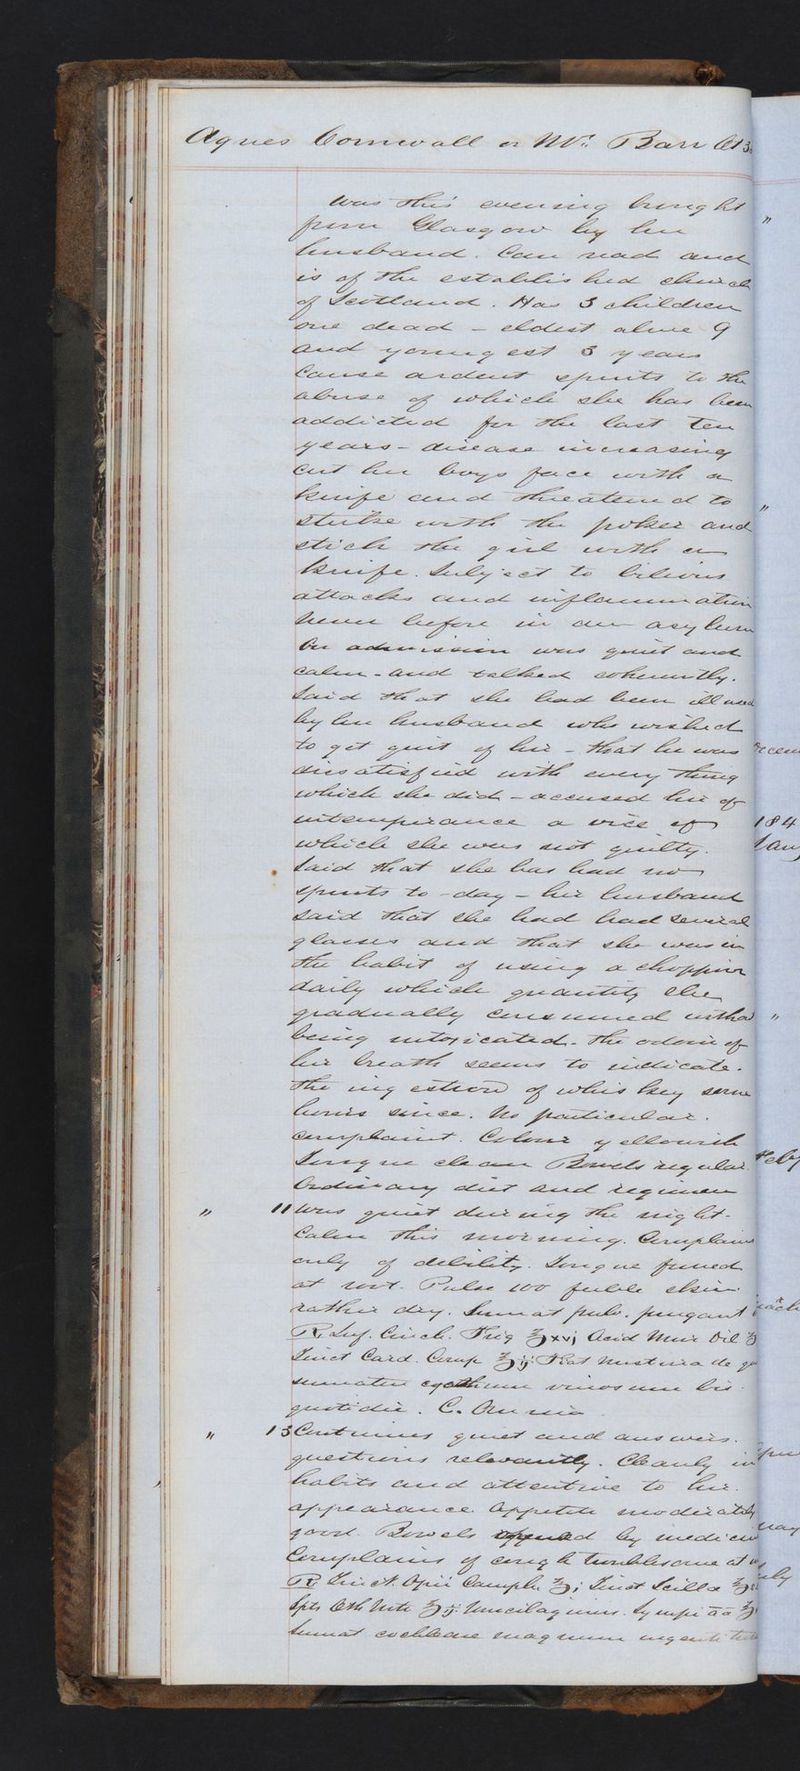 Agnes Cornwall or Mrs. Barr Æt 3
was this evening brought
from Glasgow by her
husband. Can read and
is of the established church
of Scotland. Has 3 children
one dead - eldest alive 9
and youngest 3 years
Cause ardent spirits to the
abuse of which she has been
addicted for the last ten
years - disease increasing
cut her boys face with a
knife and threatened to
strike with the poker and
stick the girl with a
knife. Subject to bilious
attacks and inflammation
never before in an asylum
On admission was quiet and
calm - and talked coherently.
Said that she had been ill used
by her husband who wished
to get quit of her - that he was
dissatisfied with every thing
which she did - accused her of
intemperance a vice of
which she was not guilty.
Said that she has had no
spirits to-day - her husband
said that she had had several
glasses and that she was in
the habit of using a choppin
daily which quantity she
gradually consumed withou
being intoxicated - the odour of
her breath seems to indicate.
the ingestion of whiskey some
hours since. No particular.
complaint. Colour yellowish
Tongue clean Bowels regular
Ordinary diet and regimen
" 11 Was quiet during the night.
Calm this morning. Complains
only of debility. Tongue furred
at root. Pulse 100 feeble skin
rather dry. Sumat pulv. purgant
R. Inf. Cinch. Frig ℥xvj Acid Mur Dil
Tinct Card. Comp ℥ij Fiat mistura de
sumatur cyathum vinosum bis
quotidie. C. Omnia
" 13 Continues quiet and answers.
questions relevantly. Cleanly in
habits and attentive to her.
appearance Appetite moderately
good. Bowels opened by medicin
Complains of cough troublesome at
R Tinct. Opii Camph ℥j Tinct Scillæ
Spts Æth Nitr ℥ij Mucilaginis. Syrupi āā
Sumat cochleare magnum urgenti
"
"
184
"